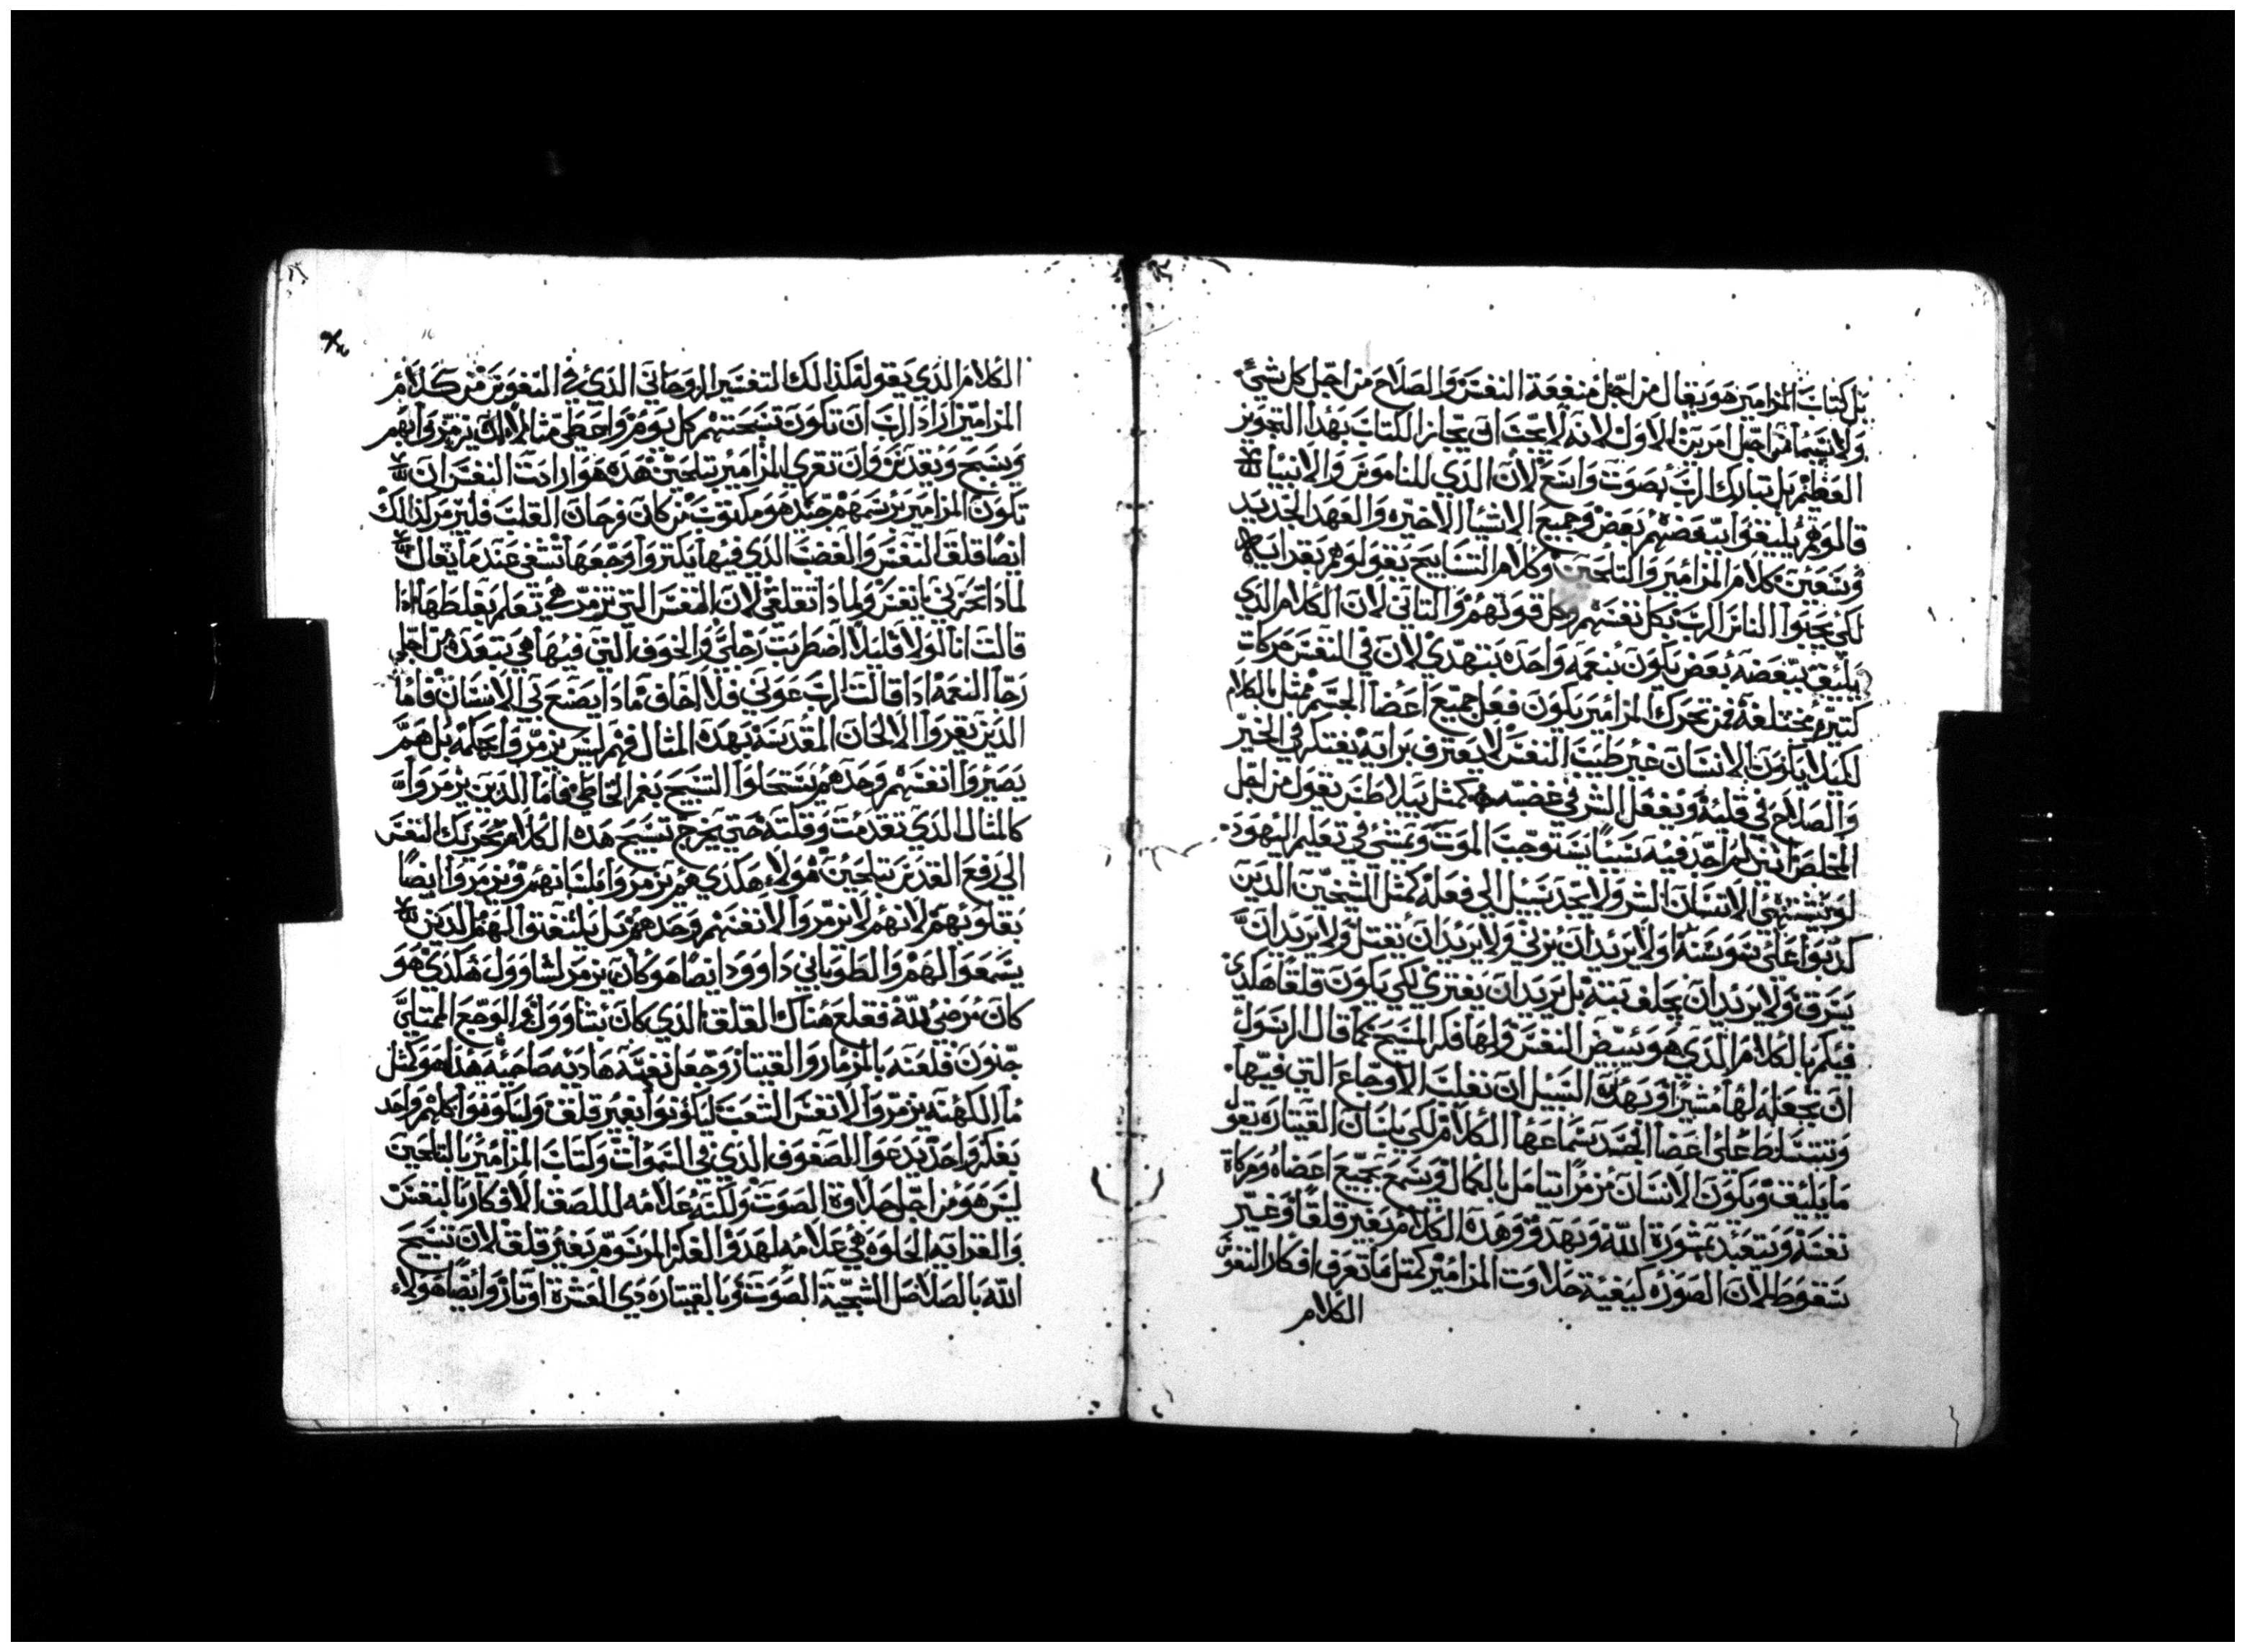 بل كتاب المزامير هو يقال من اجل منفعة النفس والصلاح من اجل كل شيء
ولا سيما من اجل امرين الاول لانه لا يجب ان الكتاب بهذا التجويز
العظيم بل تبارك الرب بصوت واسع لان الذي للناموس والانبيا
قالوهم يليقوا ببعضهم بعض وجميع الاشيا الاخيره والعهد الجديد
وتتعين كلام المزامير والتلحين وكلام التسابيح يقولوهم
لكي يحبوا الناس الرب بكل نفسهم وكل قوتهم والثاني لان الكلام الذي
يليق ببعضه بعض يكون بنغمه واحده يتهدي لان في النفس حركات
كتيره مختلفة فمن تحرك المزامير يكون فعل جميع اعضا الجسم ممثل بالكلام
لكيلا يكون الانسان غير طيب النفس لا يعترف برايه يفتكر في الخير
والصلاح في قلبه ويفعل الشر في غضبه كمثل بيلاطس يقول من اجل
المخلص انني لم اجد فيه سببا يستوجب الموت ومشى في تعليم اليهود
لو يشتهي الانسان الشر ولا يجد سبيل الى فعله كمثل الشيخين الذين
كدبوا على سوسنه او لا يريد ان يزني ولا يريد ان يقتل ولا يريد ان
يسرق ولا يريد ان يحلف بته بل يريد ان يفتري لكي يكون قلقا هكذي
فيكم بالكلام الذي هو النفس ولها فكر المسيح كما قال الرسول
ان تجعله لها مشيرا وبهذه السبيل ان تغلب الاوجاع التي فيها
وتتسلط على اعضا الجسد بسماعها الكلام لكي بلسان القيتاره يقول
ما يليق ويكون الانسان مزمرا يتامل بالكمال ويسمع بجميع اعضاه وحركاة
نفسه ويتعبد بمشورة الله وبهدو وهذه الكلام بغير قلقا وغير
سقوط لان الصوره كيفية حلاوت المزامير كمثل ما تعرف افكار النفو
الكلام
الكلام الذي يقوله كذالك التفسير الروحاني الذي في النفوس من كلام
المزامير اراد الرب ان تكون تسبحتهم كل يوم يزمروا بفهم
ويسبح ويقدس وان تقري المزامير بتلحين هذه هو ارادت النفس ان
تكون المزامير برسمهم جيد هو مكتوب من كان فرحان القلب فليزمر كذالك
ايضا قلق النفس والغضب الذي فيها يكتر واوجعها تشفى عند ما يقال
لمادا تحزني يا نفس ولمادا تقلقي لان النفس التي تزمر هي تعلم بغلطها ادا
قالت انا لولا قليلا اضطربت رجلي والخوف التي فيها هي تبعده من اجل
رجا النعمه ادا قالت الرب عوني فلا اخاف مادا يصنع بي الانسان فاما
الذين يقروا الالحان المقدسة بهذه المثال فهم ليس يزمروا بل هم
يصيروا انفسهم وحدهم يستحلوا التسبيح بفم الخاطي فاما الذين يزمروا
كالمثال الذي تقدمت وقلته حتى يخرج تسبيح هذه الكلام تحريك النفس
الى رفع القدس بتلحين هولاء هكذي هم يزمروا بلسانهم ويزمروا ايضا
بقلوبهم لانهم لا يزمروا لانفسهم وحدهم بل يليقوا لهم الدين
يسمعوا لهم والطوباني داوود ايضا هو كان يزمر لشاوول هكذي هو
كان مرضي لله فقلع هناك القلق الذي كان بشاوول والوجع الممتلي
جنون قلعته بالمزمار والقيتار وجعل نفسه هاديه صاحيه هذا هو كمثل
ما الكهنه يزمروا لانفس الشعب ليكونوا بغير قلق وليكونوا كلهم واحد
بفكر واحد يدعوا للصفوف الذي في السموات وكتاب المزامير بالتلحين
ليس هو من اجل حلاوة الصوت ولكنه علامه للصف الافكار بالنفس
والقرايه الحلوه هي علامه لهدو الفكر بغير قلق لان تسبيح
الله بالصلاصل الشجية الصوت وبالقيتاره دي العشرة اوتار وايضا هولاء